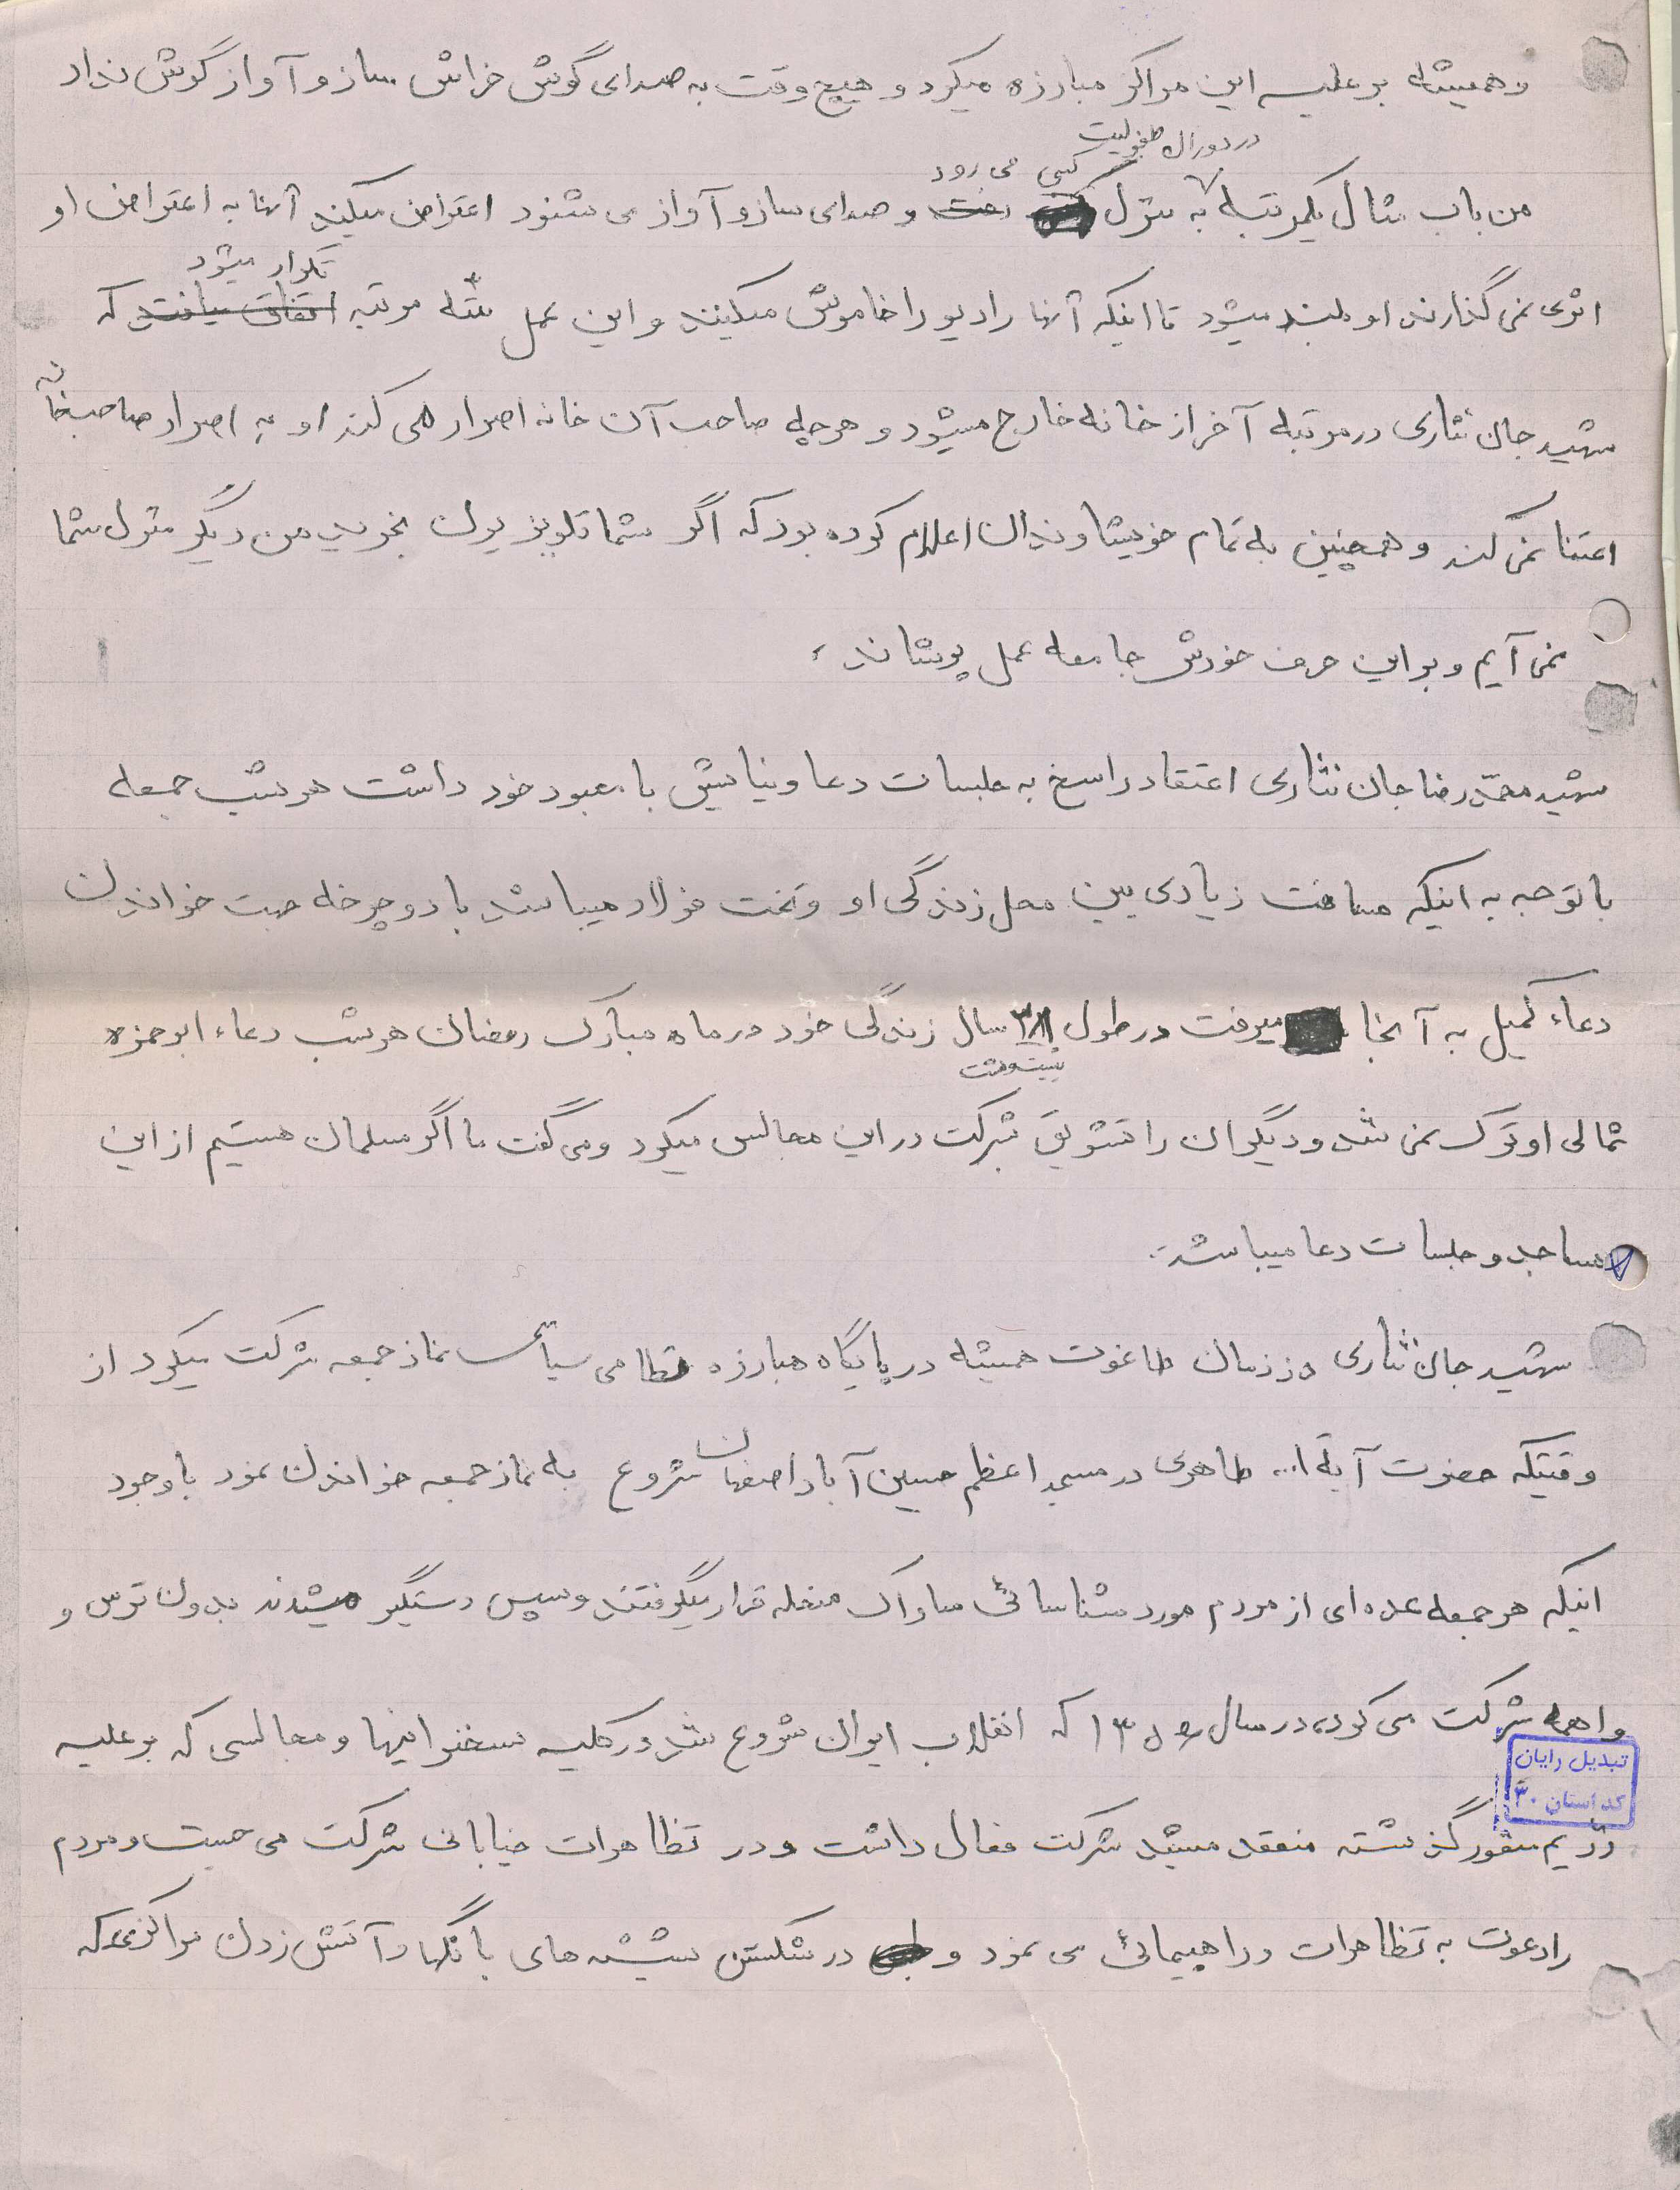 و همیشه بر علیه این مراکز مبارزه میکرد و هیچ وقت به صدای گوش خراش ساز و آواز گوش نداد
در دوران طفولیت
کسی می رود
من باب مثال یکمرتبه به منزل رفت و صدای ساز و آواز می شنود اعتراض میکند آنها به اعتراض او
تکرار میشود
اثری نمی گذارند او بلند میشود تا اینکه آنها رادیو را خاموش میکنند و این عمل سه مرتبه اتفاق میافتد که
شهید جان نثاری در مرتبه آخر از خانه خارج میشود و هر چه صاحب آن خانه اصرار می کند او به اصرار صاحبخانه
اعتنا نمی کند و همچنین به تمام خویشاوندان اعلام کرده بود که اگر شما تلویزیون بخرید من دیگر منزل شما
نمی آیم و بر این حرف خودش جامعه عمل پوشاند،
شهید محمّد رضا جان نثاری اعتقاد راسخ به جلسات دعا و نیایش با معبود خود داشت هر شب جمعه
با توجه به اینکه مسافت زیادی بین محل زندگی او و تخت فولاد میباشد با دوچرخه جهت خواندن
دعاء کمیل به آنجا میرفت در طول سال زندگی خود در ماه مبارک رمضان هر شب دعاء ابوحمزه
بیست و هشت
ثمالی او ترک نمی شد و دیگران را تشویق بشرکت در این مجالس میکرد و می گفت ما اگر مسلمان هستیم از این
مساجد و جلسات دعا میباشد.
شهید جان نثاری در زمان طاغوت همیشه در پایگاه مبارزه نظامی سیاسی نماز جمعه شرکت میکرد از
وقتیکه حضرت آیة ا... طاهری در مسجد اعظم حسین آباد اصفهان شروع به نماز جمعه خواندن نمود با وجود
اینکه هر جمعه عده ای از مردم مورد شناسائی ساواک منحله قرار میگرفتند و سپس دستگیر میشدند بدون ترس و
واهمه شرکت می کرد، در سال ۱۳۵۶ که انقلاب ایران شروع شد در کلیه سخنرانیها و مجالسی که بر علیه
تبدیل رایان
کد استان ۳۰
رژیم منفور گذشته منعقد میشد شرکت فعال داشت و در تظاهرات خیابانی شرکت می جست و مردم
را دعوت به تظاهرات و راهپیمائی می نمود و در شکستن شیشه های بانکها و آتش زدن مراکزی که